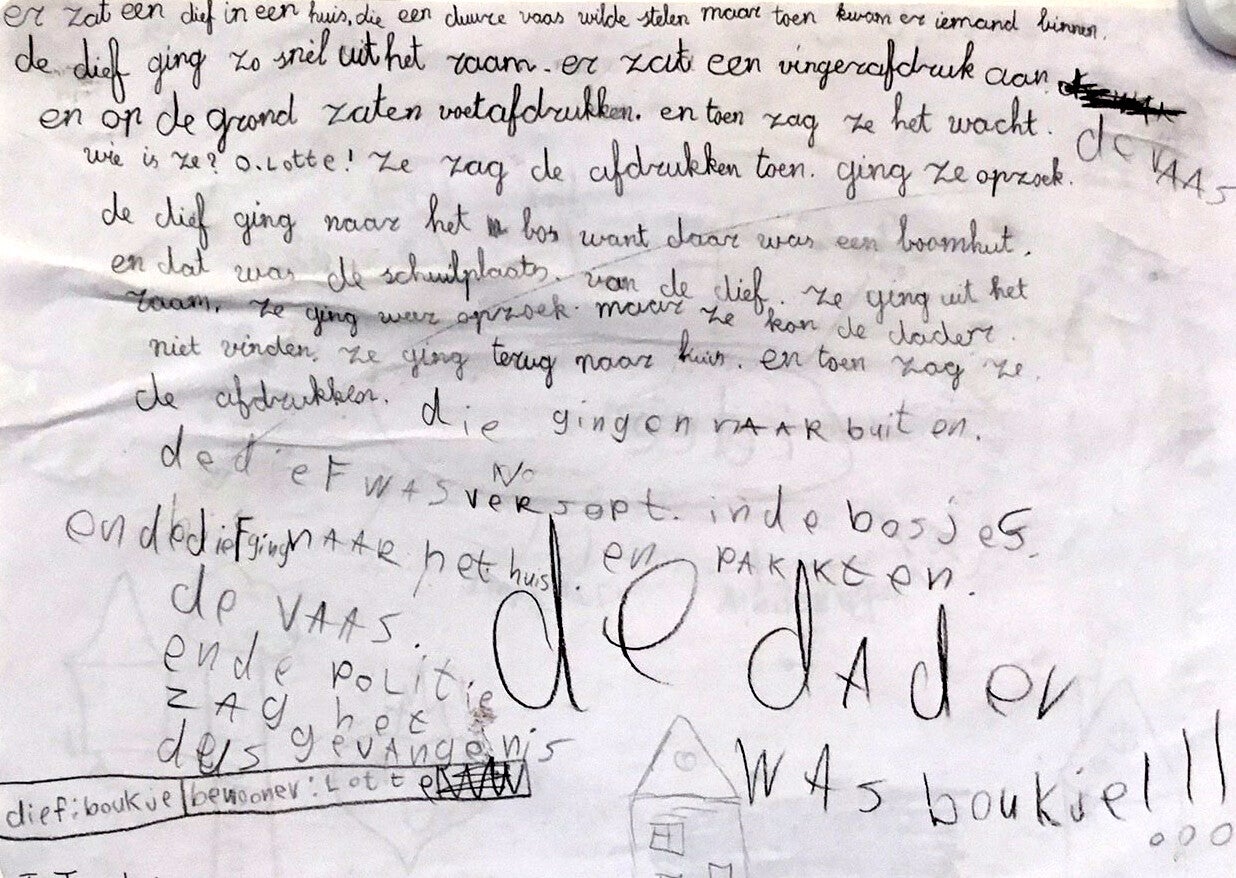 er zat een dief in een huis, die een duure vaas wilde stelen maar toen kwam er iemand binnen.
de dief ging zo snel uit het raam. er zat een vingerafdruk aan
de vAAs
en op de grond zaten voetafdrukken. en toen zag ze het wacht.
wie is ze? o. Lotte! ze zag de afdrukken toen. ging ze opzoek.
de dief ging naar het bos want daar was een boomhut.
en dat was de schuilplaats. van de dief. ze ging uit het
raam. ze ging weer opzoek. maar ze kon de dader.
niet vinden. ze ging terug naar huis. en toen zag ze.
de afdrukken. die gingen nAAR buiten.
de dieF wAs veRsopt. in de bosjes.
en de dieF ging nAAR het huis. en pAkkten.
de vAAs.
en de poLitie
zAg het
deis gevAngenis
de dAder
wAs boukje!!!
dief: boukje bewooner: Lotte